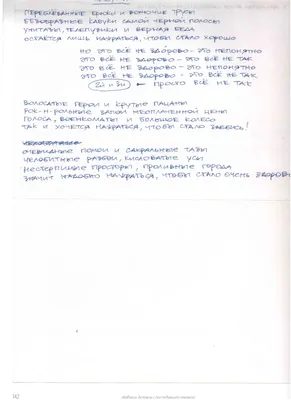 ПЕРЕШИВАННЫЕ БРЮКИ И ВОНЮЧИЕ ТРУСЫ
БЕЗОБРАЗНЫЕ САБУКИ САМОЙ ЧЁРНОЙ ПОЛОСЫ
УНИТАЗЫ, ТЕЛЕПУЗИКИ И ВЕРНАЯ БЕДА
ОСТАЁТСЯ ЛИШЬ НАЖРАТЬСЯ, ЧТОБЫ СТАЛО ХОРОШО
НО ЭТО ВСЁ НЕ ЗДОРОВО - ЭТО НЕПОНЯТНО
ЭТО ВСЁ НЕ ЗДОРОВО - ЭТО ВСЁ НЕ ТАК
ЭТО ВСЁ НЕ ЗДОРОВО - ЭТО НЕПОНЯТНО
ЭТО ВСЁ НЕ ЗДОРОВО - ЭТО ВСЁ НЕ ТАК
ПРОСТО ВСЁ НЕ ТАК
ВОЛОСАТЫЕ ГЕРОИ И КРУТЫЕ ПАЦАНЫ
РОК-Н-РОЛЬНЫЕ ЗАПОИ НЕОПЛАЧЕННОЙ ЦЕНЫ
ГОЛОСА, ВОЕНКОМАТЫ И БОЛЬШОЕ КОЛЕСО
ТАК И ХОЧЕТСЯ НАЖРАТЬСЯ, ЧТОБЫ СТАЛО ЗАЕБИСЬ!
ОЧЕВИДНЫЕ ПОМОИ И САКРАЛЬНЫЕ ТАЗЫ
ЧЕЛОБИТНЫЕ РАЗБОИ, КИСЛОВАТЫЕ УСЫ
НЕСТЕРПИМЫЕ ПРОСТОРЫ, ПРОЛИВНЫЕ ГОРОДА
ЗНАЧИТ НАДОБНО НАЖРАТЬСЯ, ЧТОБЫ СТАЛО ОЧЕНЬ ЗДОРОВО